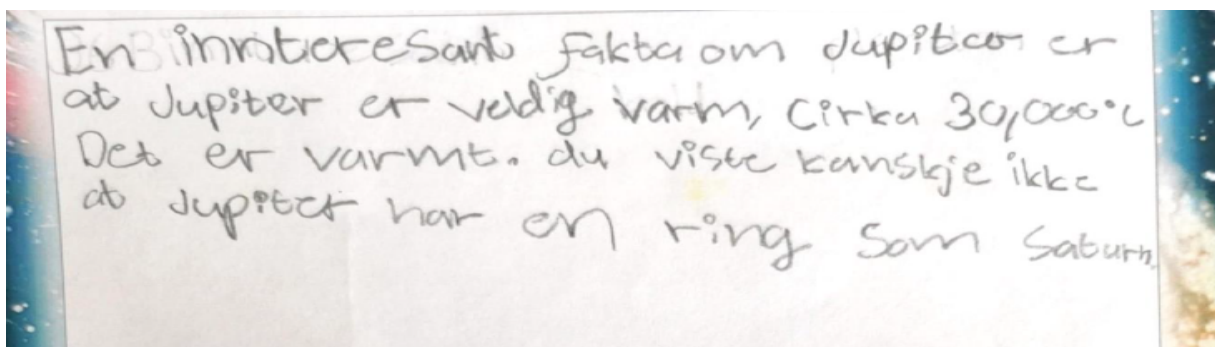 En innteresant fakta om Jupiter er
at Jupiter er veldig varm, Cirka 30,000°C
Det er varmt. du viste kanskje ikke
at Jupiter har en ring som Saturn.